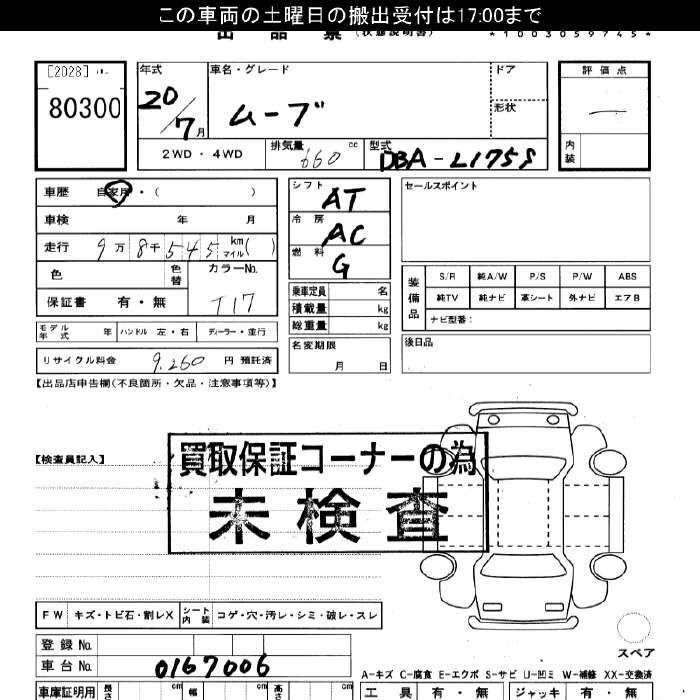 この車両の土曜日の搬出受付は17:00まで
出品票(状態説明書)
*1003059745*
[2028]
80300
年式
20/7月
車名・グレード
ムーブ
ドア
形状
評価点
内装
2WD・4WD
排気量 660 cc
型式 DBA-L175S
車歴 自家用・( )
車検 年 月
走行 9万8千545 km マイル( )
色
色替
カラーNo.
T17
保証書 有・無
モデル年式 年
ハンドル 左・右
ディーラー・並行
リサイクル料金 9,260 円 預託済
シフト AT
冷房 AC
燃料 G
乗車定員 名
積載量 kg
総重量 kg
名変期限
月 日
セールスポイント
装備品
S/R 純A/W P/S P/W ABS
純TV 純ナビ 革シート 外ナビ エアB
ナビ型番:
後日品
【出品店申告欄(不良箇所・欠品・注意事項等)】
【検査員記入】
買取保証コーナーの為
未検査
FW キズ・トビ石・割レX
シート内装 コゲ・穴・汚レ・シミ・破レ・スレ
登録No.
車台No. 0167006
スペア
A-キズ C-腐食 E-エクボ S-サビ U-凹ミ W-補修 XX-交換済
車庫証明用 長さ cm 幅 cm 高さ cm
工具 有・無 ジャッキ 有・無